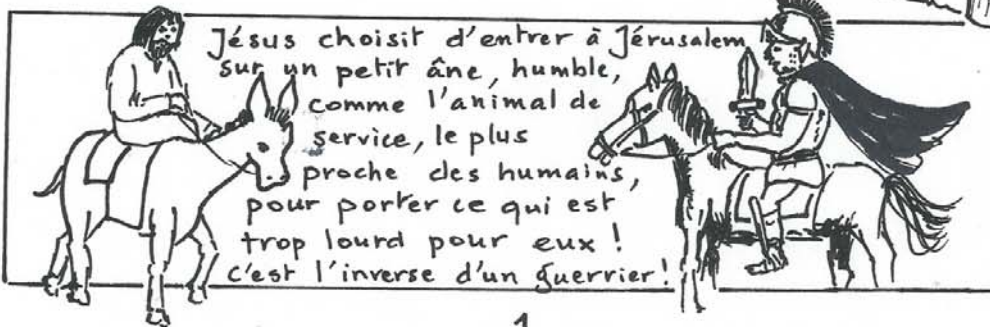 Jésus choisit d'entrer à Jérusalem
sur un petit âne, humble,
comme l'animal de
service, le plus
proche des humains,
pour porter ce qui est
trop lourd pour eux !
c'est l'inverse d'un guerrier !
1